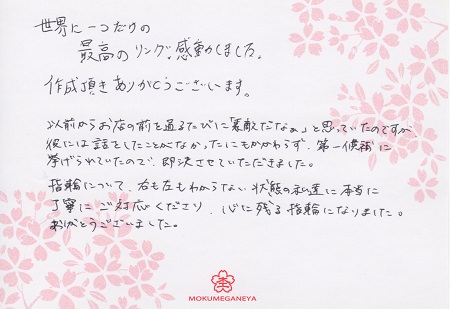 世界に一つだけの
最高のリング、感動しました。
作成頂きありがとうございます。
以前からお店の前を通るたびに「素敵だなぁ」と思っていたのですが
彼には話をしたことがなかったにもかかわらず、第一候補に
挙げられていたので、即決させていただきました。
指輪について、右も左もわからない状態の私達に本当に
丁寧にご対応くださり、心に残る指輪になりました。
ありがとうございました。
MOKUMEGANEYA